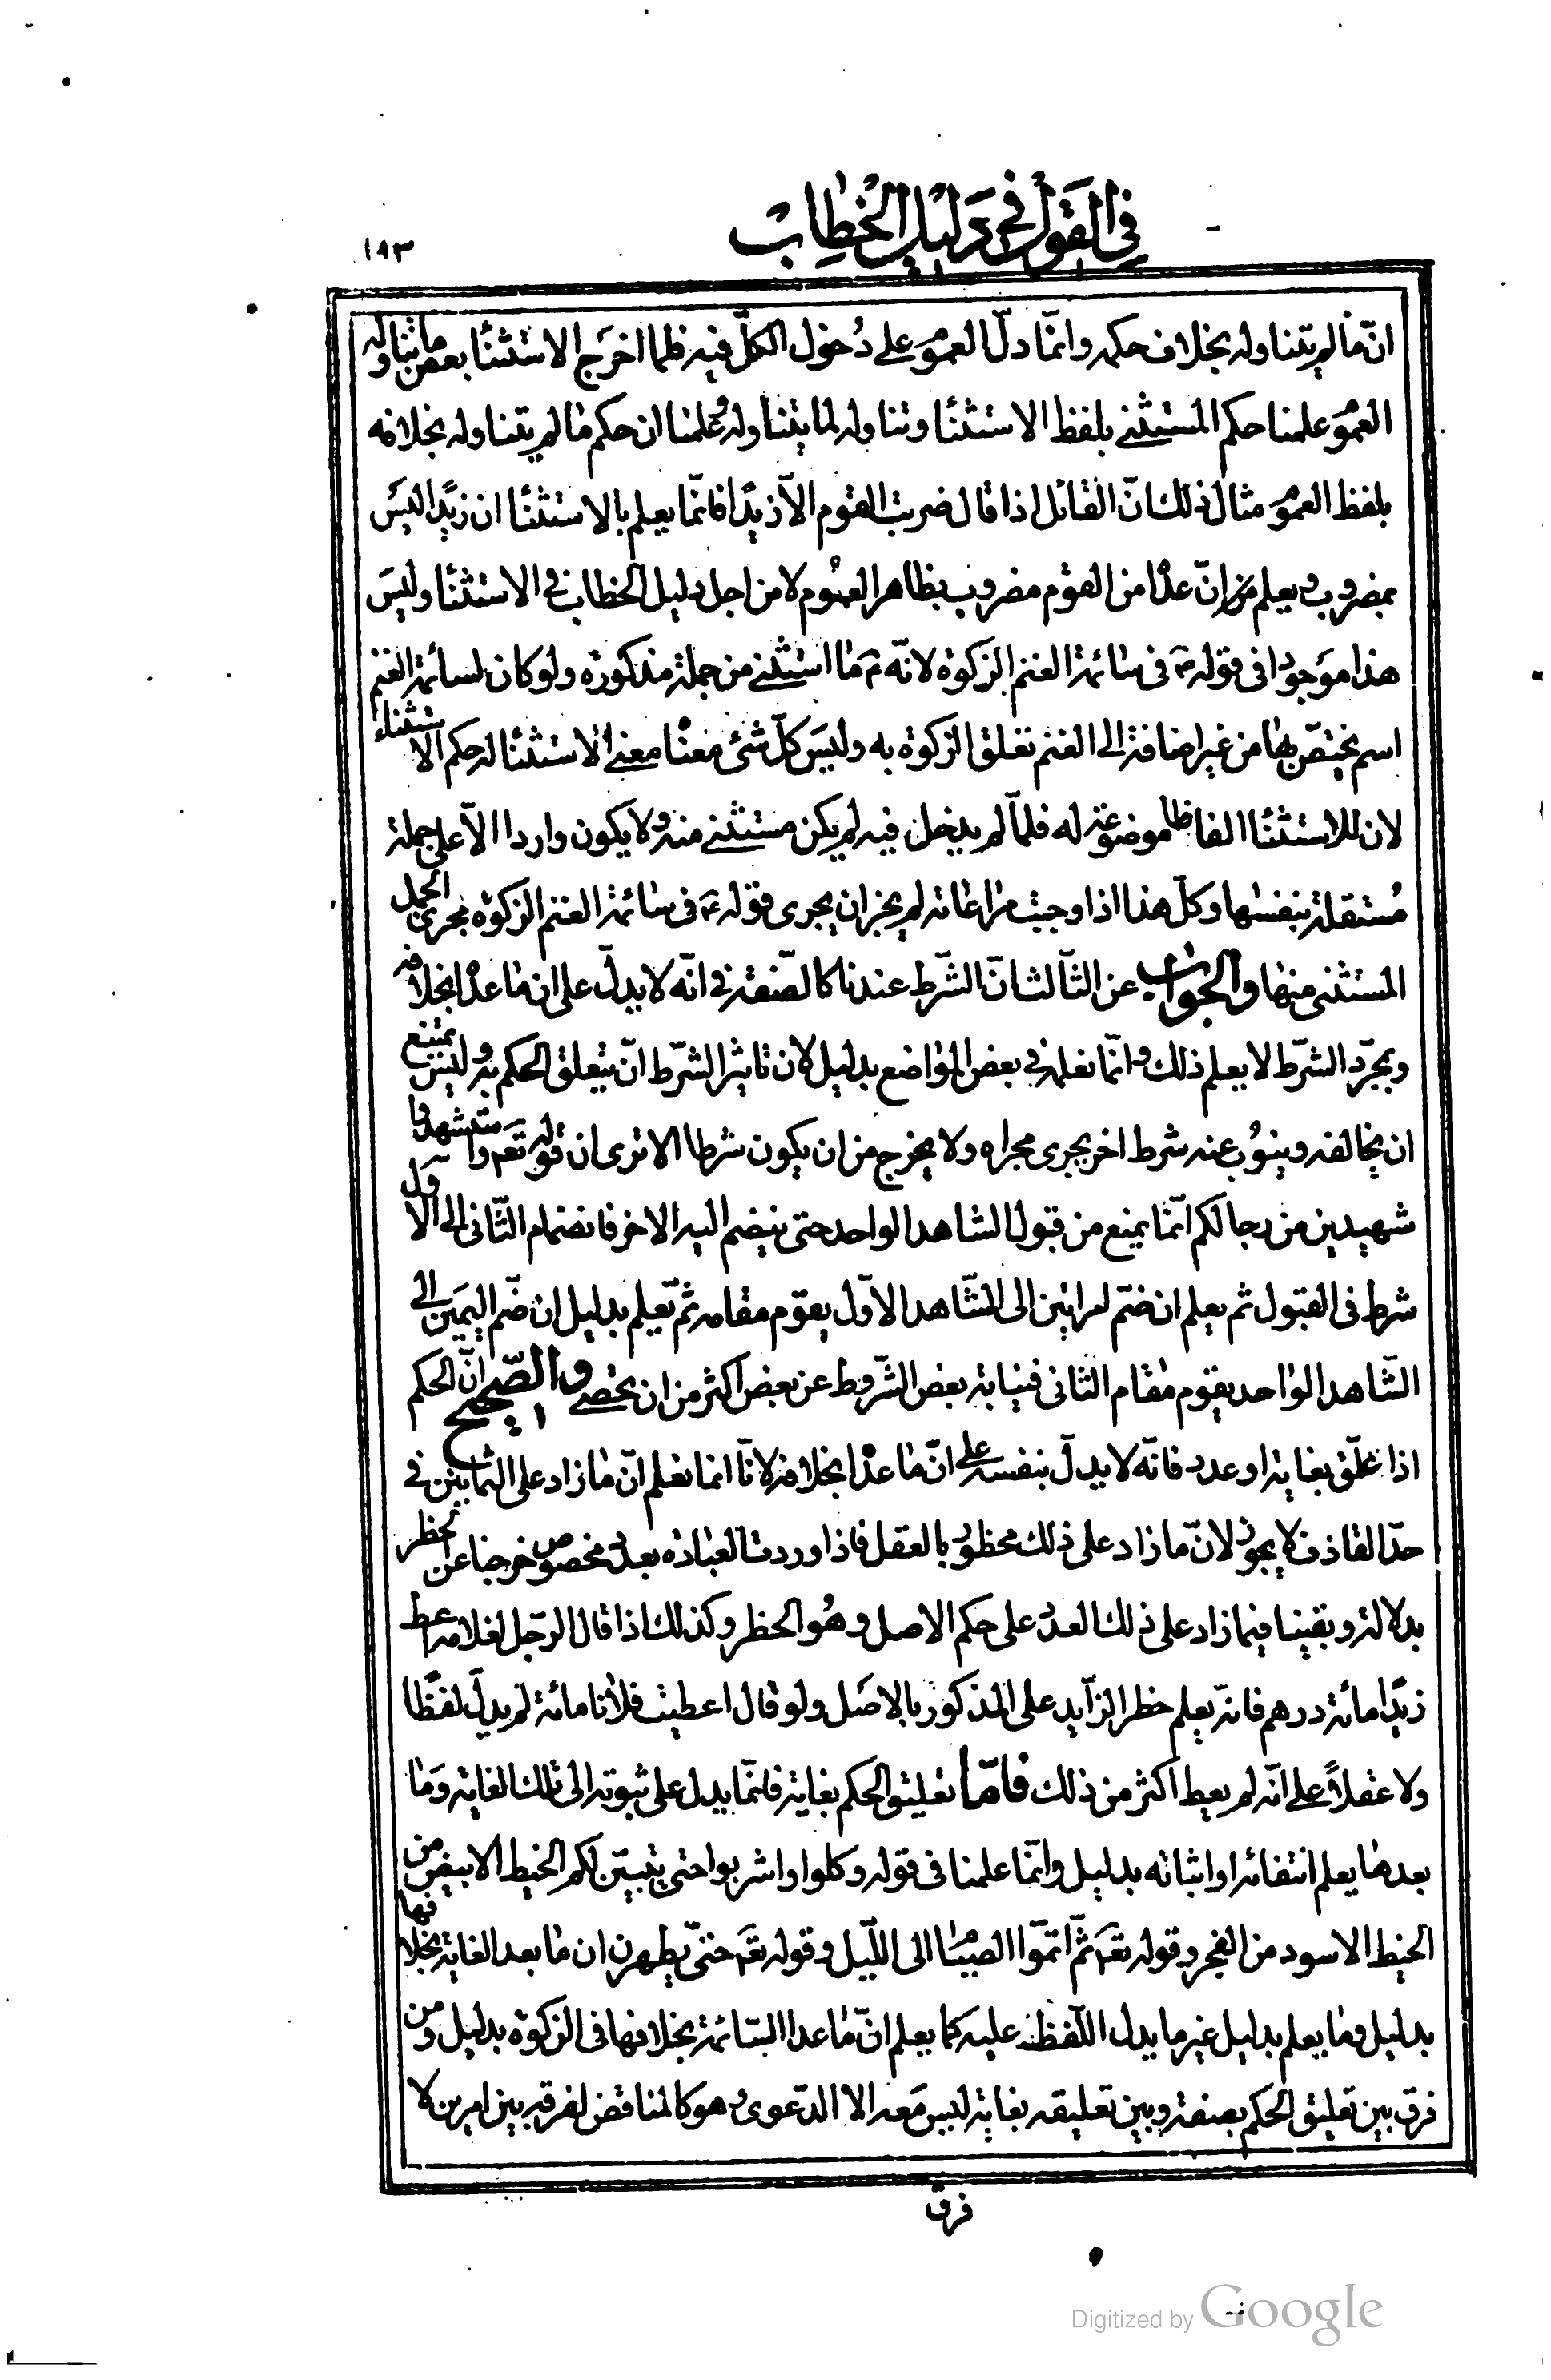 في القول في دليل الخطاب
١٨٣
انّ ما لم يتناوله بخلاف حكمه وانّما دلّ العموم على دخول الكلّ فيه فلما اخرَج الاستثنا بعض ما يتناوله
العموم علمنا حكم المستثنى بلفظ الاستثنا وتناوله لما يتناوله وعلمنا ان حكم ما لم يتناوله بخلافه
بلفظ العموم مثال ذلك انّ القائل اذا قال ضربت القوم الّا زيدًا فانّما يعلم بالاستثنا ان زيدًا ليسَ
بمضروب ويعلم من انّ عدا من القوم مضروب بظاهر العموم لا من اجل دليل الخطاب في الاستثنا وليسَ
هذا موَجودا في قوله ع في سائمة الغنم الزكوة لانّه ع ما استثنى من جملة مذكورة ولو كان لسائمة الغنم
اسم يختصّ بها من غير اضافة الى الغنم تعلق الزكوة به وليسَ كلّ شئ معنا معنى الاستثنا له حكم الاستثناء
لان للاستثنا الفاظا موضوعة له فلمّا لم يدخل فيه لم يكن مستثنى منه ولا يكون واردا الّا على جملة
مُستقلة بنفسها وكلّ هذا اذا وجبت مراعاته لم يجز ان يجرى قوله ع في سائمة الغنم الزكوة مجرى الجمل
المستثنى منها والجواب عن الثّالث انّ الشّرط عندنا كالصّفة في انّه لا يدلّ على ان ما عداه بخلافه
وبمجرّد الشّرط لا يعلم ذلك وانّما نعلمه في بعض المواضع بدليل لان تاثير الشّرط انّ يتعلق الحكم به وليس يمتنع
ان يخالفه وينوُب عنه شرط اخر يجرى مجراه ولا يخرج من ان يكون شرطا الا ترى ان قوله تعَ واستشهدوا
شهيدين من رجالكم انّما يمنع من قبول الشاهد الواحد حتى ينضم اليه الاخر فانضمام الثّانى الى الاوّل
شرط في القبول ثم يعلم ان ضمّ امراتين الى الشّاهد الاوّل يقوم مقامه ثمّ يعلم بدليل ان ضمّ اليمَين الى
الشّاهد الواحد يقوم مقام الثانى فنيابة بعض الشّروط عن بعض اكثر من ان يحصى والصّحيح انّ الحكم
اذا علّق بغاية او عدد فانّه لا يدلّ بنفسه على انّ ما عداه بخلافه لانّا انما نعلم انّ ما زاد على الثمانين في
حدّ القاذف لا يجوز لانّ ما زاد على ذلك محظور بالعقل فاذا وردت العباده بعدد مخصوص خرجنا عن الحظر
بدلالة وبقينا فيما زاد على ذلك العدد على حكم الاصل وهُو الحظر وكذلك اذا قال الرّجل لغلامه اعط
زيدًا مائة درهم فانّه يعلم حظر الزّايد على المذكور بالاصَل ولو قال اعطيت فلانا مائة لم يدلّ لفظًا
ولا عقلاً على انّه لم يعط اكثر من ذلك فامّا تعليق الحكم بغاية فانّما يدل على ثبوته الى تلك الغاية وَما
بعدها يعلم انتفائه او اثباته بدليل وانّما علمنا في قوله وكلوا واشربوا حتى يتبيّن لكم الخيط الابيض من
الخيط الاسود من الفجر وقوله تعَ ثمّ اتمّوا الصيام الى اللّيل وقوله تعَ حتىّ يطهرن ان ما بعد الغاية بخلافها
بدليل وما يعلم بدليل غير ما يدل اللّفظ عليه كما يعلم انّ ما عدا السّائمة بخلافها في الزكوة بدليل ومن
فرق بين تعليق الحكم بصفة وبين تعليقه بغاية ليس مَعه الا الدّعوى وهو كالمناقض لفرقه بين امرين لا
فرق
Digitized by Google